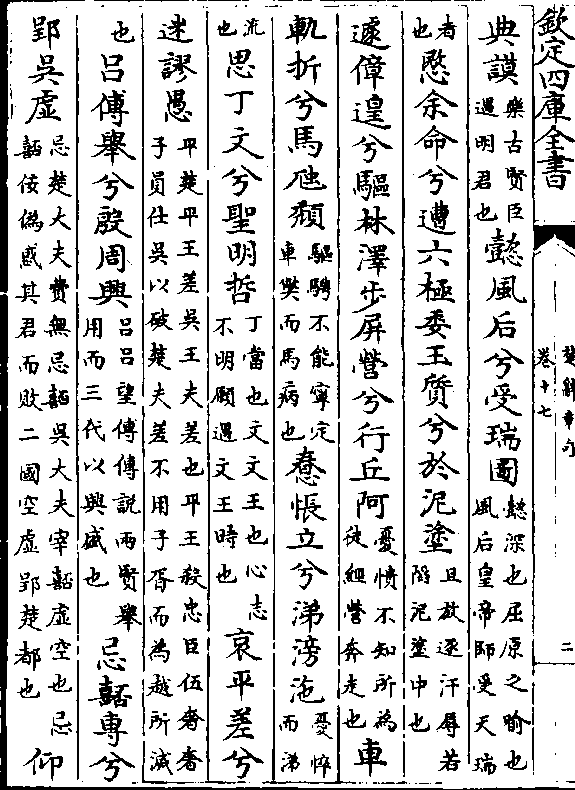 欽定四庫全書
楚辭章句
卷十七
二
典謨樂古賢臣遇明君也懿風后兮受瑞圖懿深也屈原之喻也風后皇帝師受天瑞
者也愍余命兮遭六極委王質兮於泥塗且放逐汙辱若陷泥塗中也
遽傽遑兮驅林澤步屏營兮行丘阿憂憒不知所為徒經營奔走也車
軏折兮馬虺頹驅騁不能寧定車弊而馬病也惷悵立兮涕滂沲憂悴而涕
流也思丁文兮聖明哲丁當也文文王也心志不明願遇文王時也哀平差兮
迷謬愚平楚平王差吳王夫差也平王殺忠臣伍奢奢子員仕吳以破楚夫差不用子胥而為越所滅
也呂傅舉兮殷周興呂呂望傅傅說兩賢舉用而三代以興盛也忌嚭專兮
郢吳虛忌楚大夫費無忌嚭吳大夫宰嚭虛空也忌嚭佞偽惑其君而敗二國空虛郢楚都也仰